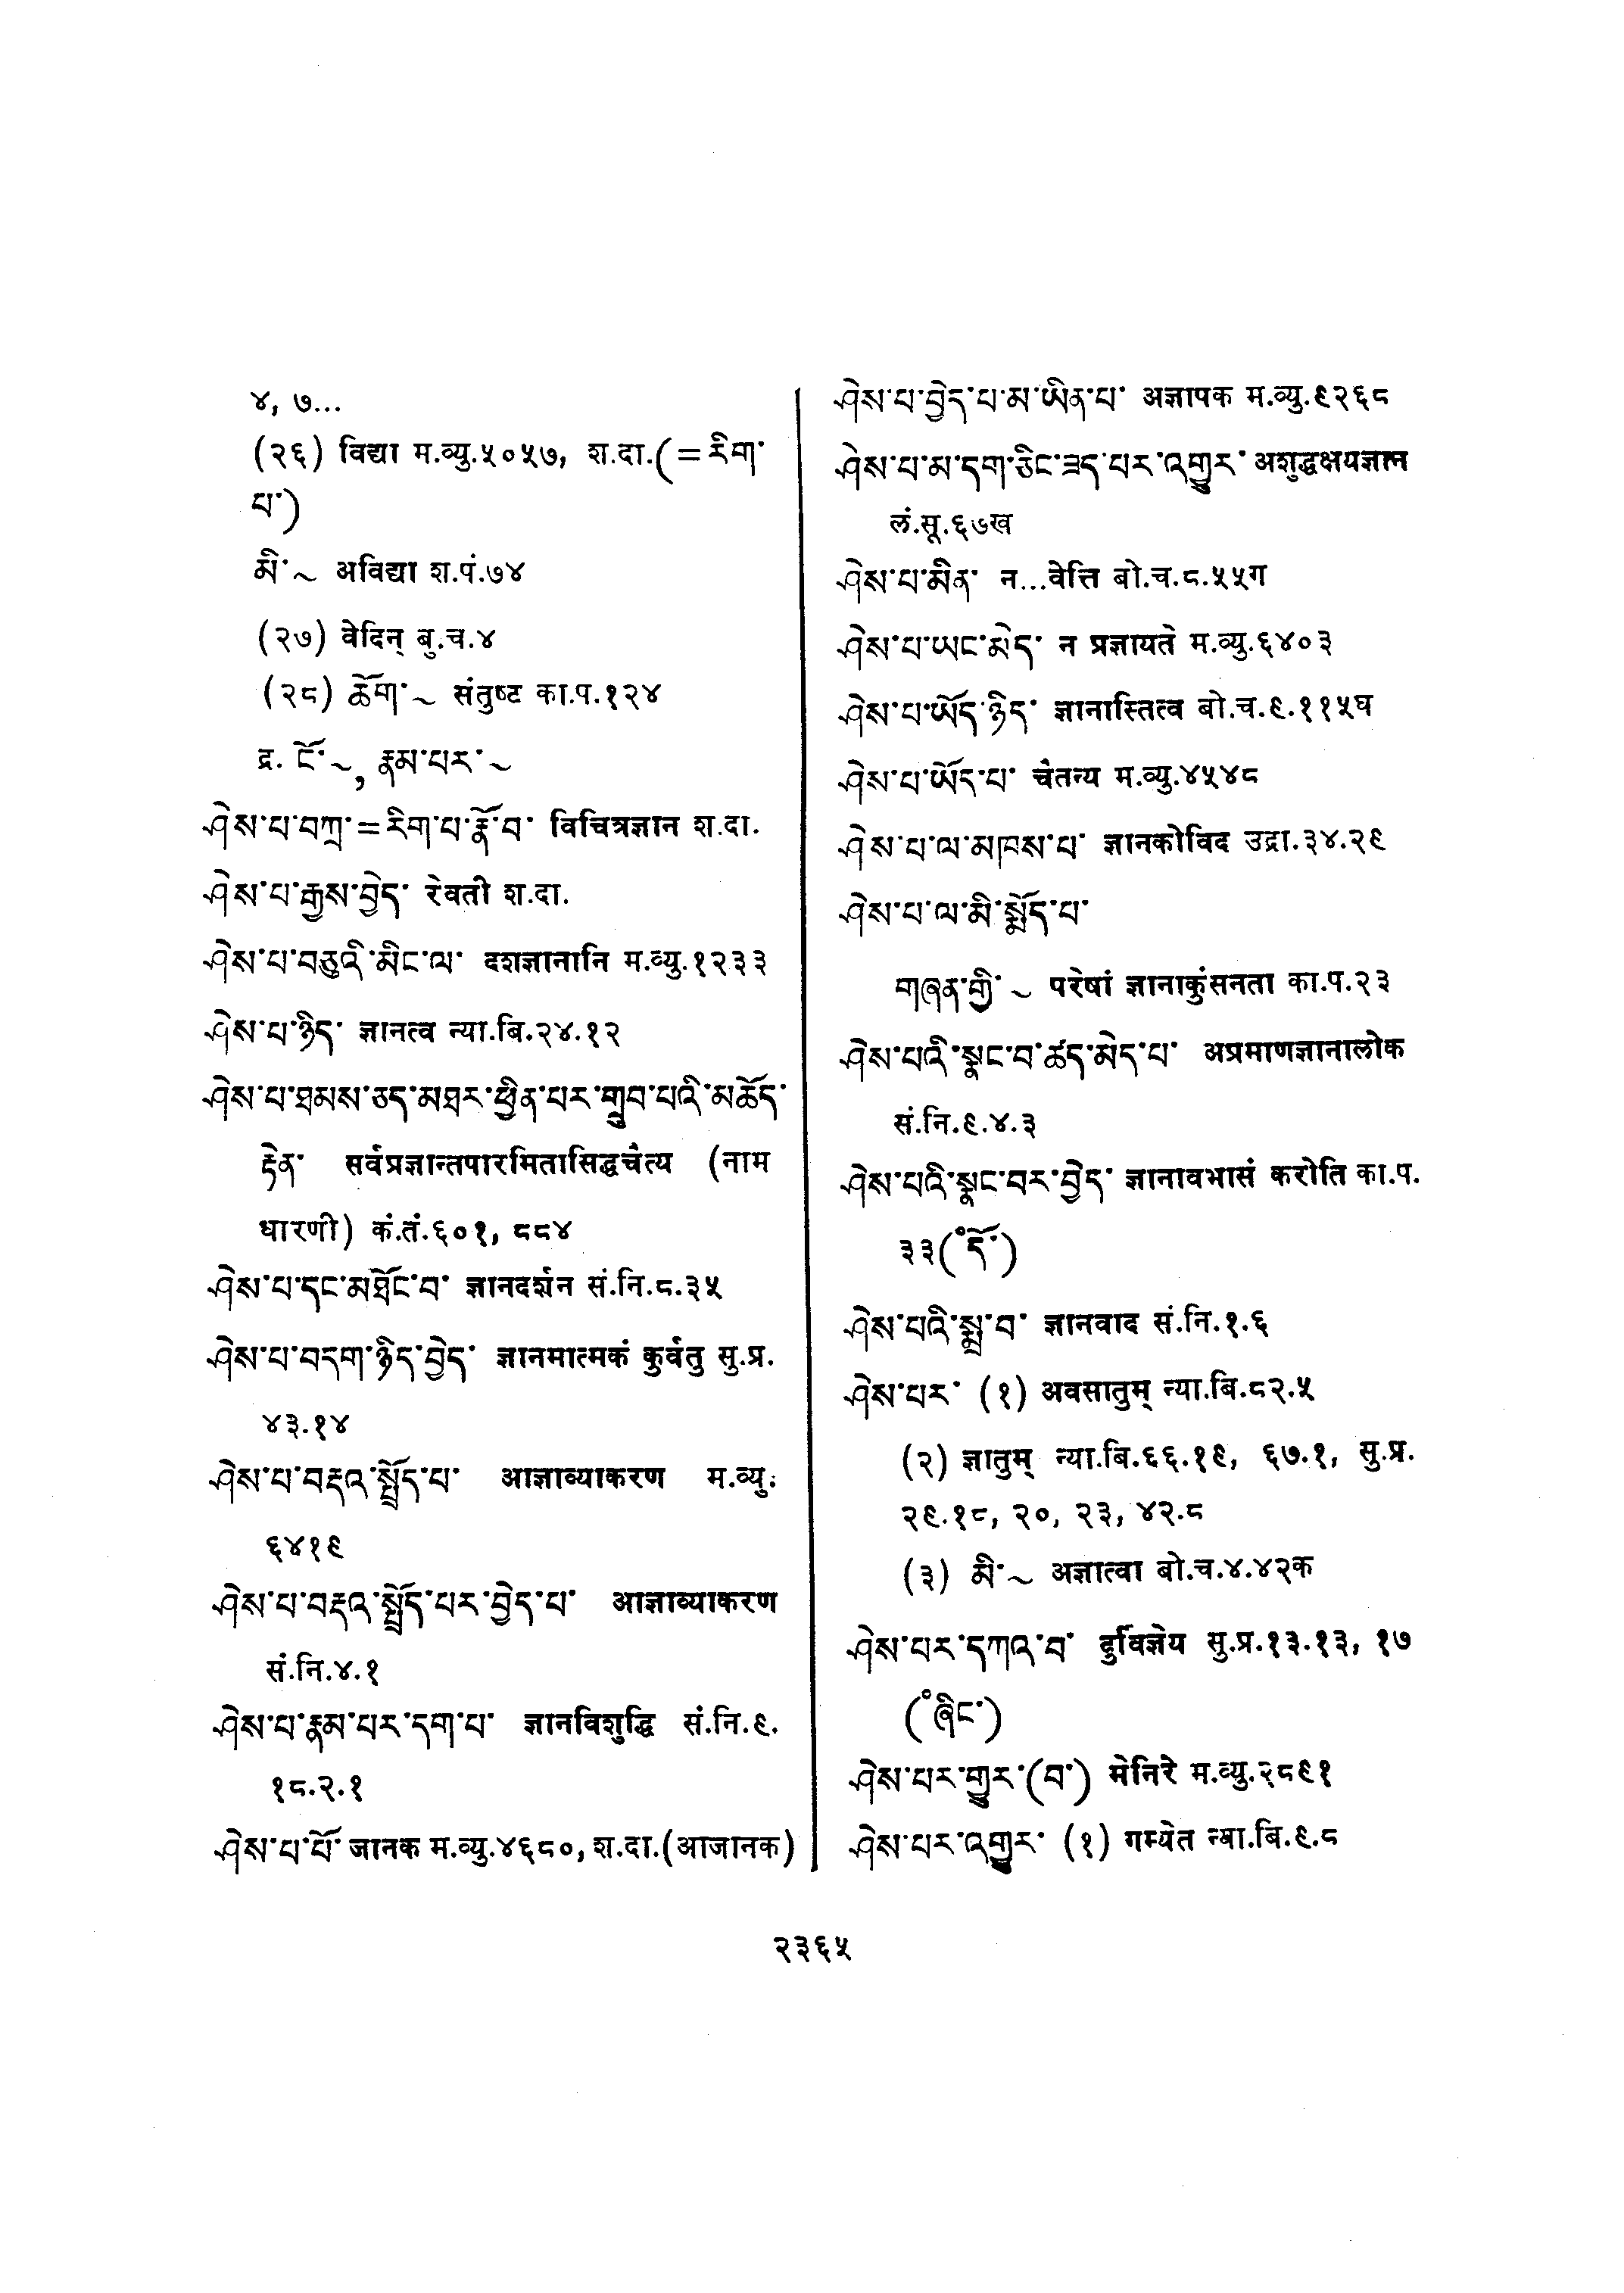 ४, ७...
(२६) विद्या म.व्यु.५०५७, श.दा.(=རིག་
པ་)
མི་~ अविद्या श.पं.७४
(२७) वेदिन् बु.च.४
(२८) ཆོག་~ संतुष्ट का.प.१२४
द्र. ངོ་~, རྣམ་པར་~
ཤེས་པ་བཀྲ་=རིག་པ་རྣོ་བ་ विचित्रज्ञान श.दा.
ཤེས་པ་རྒྱས་བྱེད་ रेवती श.दा.
ཤེས་པ་བཅུའི་མིང་ལ་ दशज्ञानानि म.व्यु.१२३३
ཤེས་པ་ཉིད་ ज्ञानत्व न्या.बि.२४.१२
ཤེས་པ་ཐམས་ཅད་མཐར་ཕྱིན་པར་གྲུབ་པའི་མཆོད་
རྟེན་ सर्वप्रज्ञान्तपारमितासिद्धचैत्य (नाम
धारणी) कं.तं.६०१, ८८४
ཤེས་པ་དང་མཐོང་བ་ ज्ञानदर्शन सं.नि.८.३५
ཤེས་པ་བདག་ཉིད་བྱེད་ ज्ञानमात्मकं कुर्वतु सु.प्र.
४३.१४
ཤེས་པ་བརྡའ་སྤྲོད་པ་ आज्ञाव्याकरण म.व्यु.
६४१९
ཤེས་པ་བརྡའ་སྤྲོད་པར་བྱེད་པ་ आज्ञाव्याकरण
सं.नि.४.१
ཤེས་པ་རྣམ་པར་དག་པ་ ज्ञानविशुद्धि सं.नि.९.
१८.२.१
ཤེས་པ་པོ་ जानक म.व्यु.४६८०, श.दा.(आजानक)
ཤེས་པ་བྱེད་པ་མ་ཡིན་པ་ अज्ञापक म.व्यु.९२६८
ཤེས་པ་མ་དག་ཅིང་ཟད་པར་འགྱུར་ अशुद्धक्षयज्ञान
लं.सू.६७ख
ཤེས་པ་མིན་ न...वेत्ति बो.च.८.५५ग
ཤེས་པ་ཡང་མེད་ न प्रज्ञायते म.व्यु.६४०३
ཤེས་པ་ཡོད་ཉིད་ ज्ञानास्तित्व बो.च.९.११५घ
ཤེས་པ་ཡོད་པ་ चैतन्य म.व्यु.४५४८
ཤེས་པ་ལ་མཁས་པ་ ज्ञानकोविद उद्रा.३४.२९
ཤེས་པ་ལ་མི་སྨོད་པ་
གཞན་གྱི་~ परेषां ज्ञानाकुंसनता का.प.२३
ཤེས་པའི་སྣང་བ་ཚད་མེད་པ་ अप्रमाणज्ञानालोक
सं.नि.९.४.३
ཤེས་པའི་སྣང་བར་བྱེད་ ज्ञानावभासं करोति का.प.
३३(°དོ་)
ཤེས་པའི་སྨྲ་བ་ ज्ञानवाद सं.नि.१.६
ཤེས་པར་ (१) अवसातुम् न्या.बि.८२.५
(२) ज्ञातुम् न्या.बि.६६.१९, ६७.१, सु.प्र.
२९.१८, २०, २३, ४२.८
(३) མི་~ अज्ञात्वा बो.च.४.४२क
ཤེས་པར་དཀའ་བ་ दुर्विज्ञेय सु.प्र.१३.१३, १७
(°ཞིང་)
ཤེས་པར་གྱུར་(བ་) मेनिरे म.व्यु.२८९१
ཤེས་པར་འགྱུར་ (१) गम्येत न्या.बि.९.८
२३६५